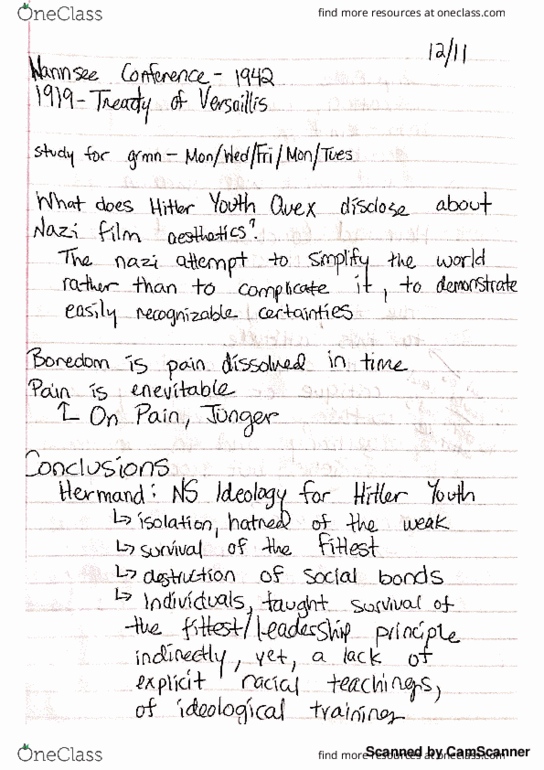 OneClass
find more resources at oneclass.com
12/11
Wannsee Conference - 1942
1919 - Treaty of Versaillis
study for grmn - Mon/Wed/Fri/Mon/Tues
What does Hitler Youth Quex disclose about
Nazi film aesthetics?
The nazi attempt to simplify the world
rather than to complicate it, to demonstrate
easily recognizable certainties
Boredom is pain dissolved in time
Pain is enevitable
↳ On Pain, Junger
Conclusions
Hermand: NS Ideology for Hitler Youth
↳ isolation, hatred of the weak
↳ survival of the fittest
↳ destruction of social bonds
↳ Individuals, taught survival of
the fittest/leadership principle
indirectly, yet, a lack of
explicit racial teachings,
of ideological training
OneClass
find more resources at oneclass.com
Scanned by CamScanner